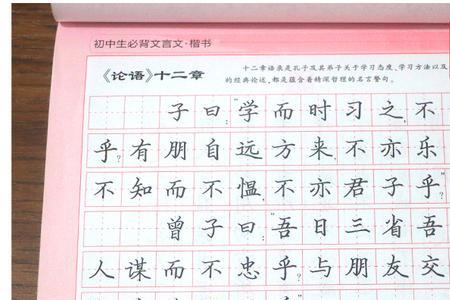 初中生必背文言文·楷书
《论语》十二章
十二章语录是孔子及其弟子关于学习态度、学习方法以及
的经典论述，都是蕴含着精深哲理的名言警句。
子曰：“学而时习之，不
乎？有朋自远方来，不亦乐
不知而不愠，不亦君子乎？”
曾子曰：“吾日三省吾
人谋而不忠乎？与朋友交